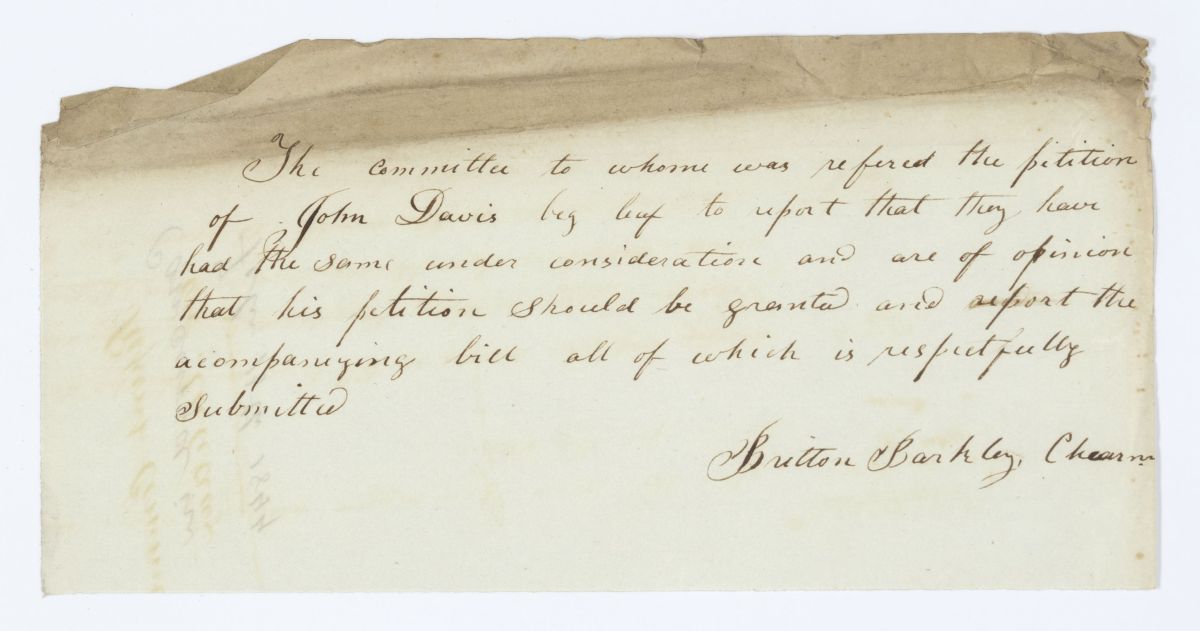 The committee to whome was refered the petition
of John Davis beg leaf to report that they have
had the same under consideration and are of opinion
that his petition should be granted and report the
acompanying bill all of which is respectfully
Submitted
Britton Barkley, Chearm